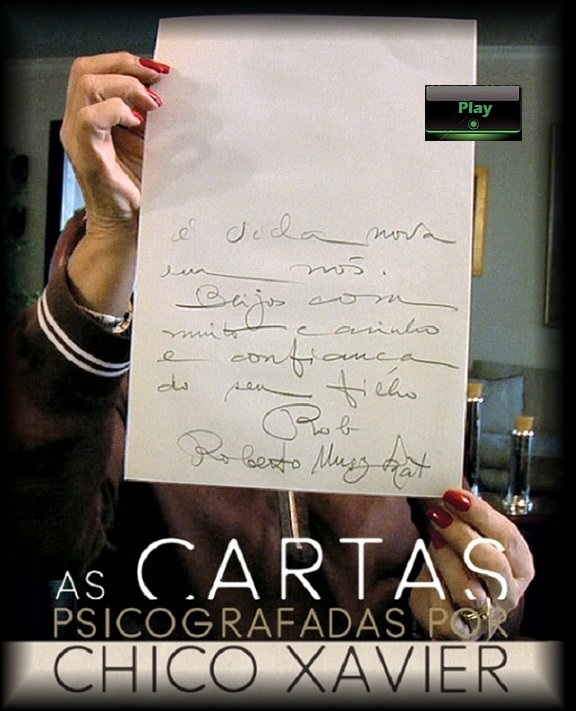 Play
é vida nova
em nós.
Beijos com
muito carinho
e confiança
do seu filho
Rob
Roberto
AS CARTAS
PSICOGRAFADAS POR
CHICO XAVIER